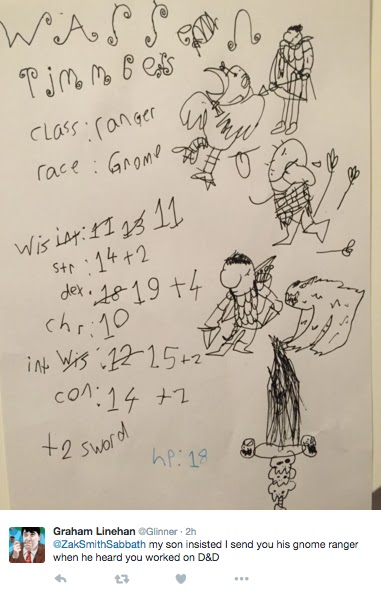 WASSen n
Timmbers
class: ranger
race: Gnome
Wis int: 11 13 11
str: 14 +2
dex. 18 19 +4
chr: 10
int Wis: 12 15 +2
con: 14 +2
+2 sword
hp: 18
Graham Linehan @Glinner · 2h
@ZakSmithSabbath my son insisted I send you his gnome ranger
when he heard you worked on D&D